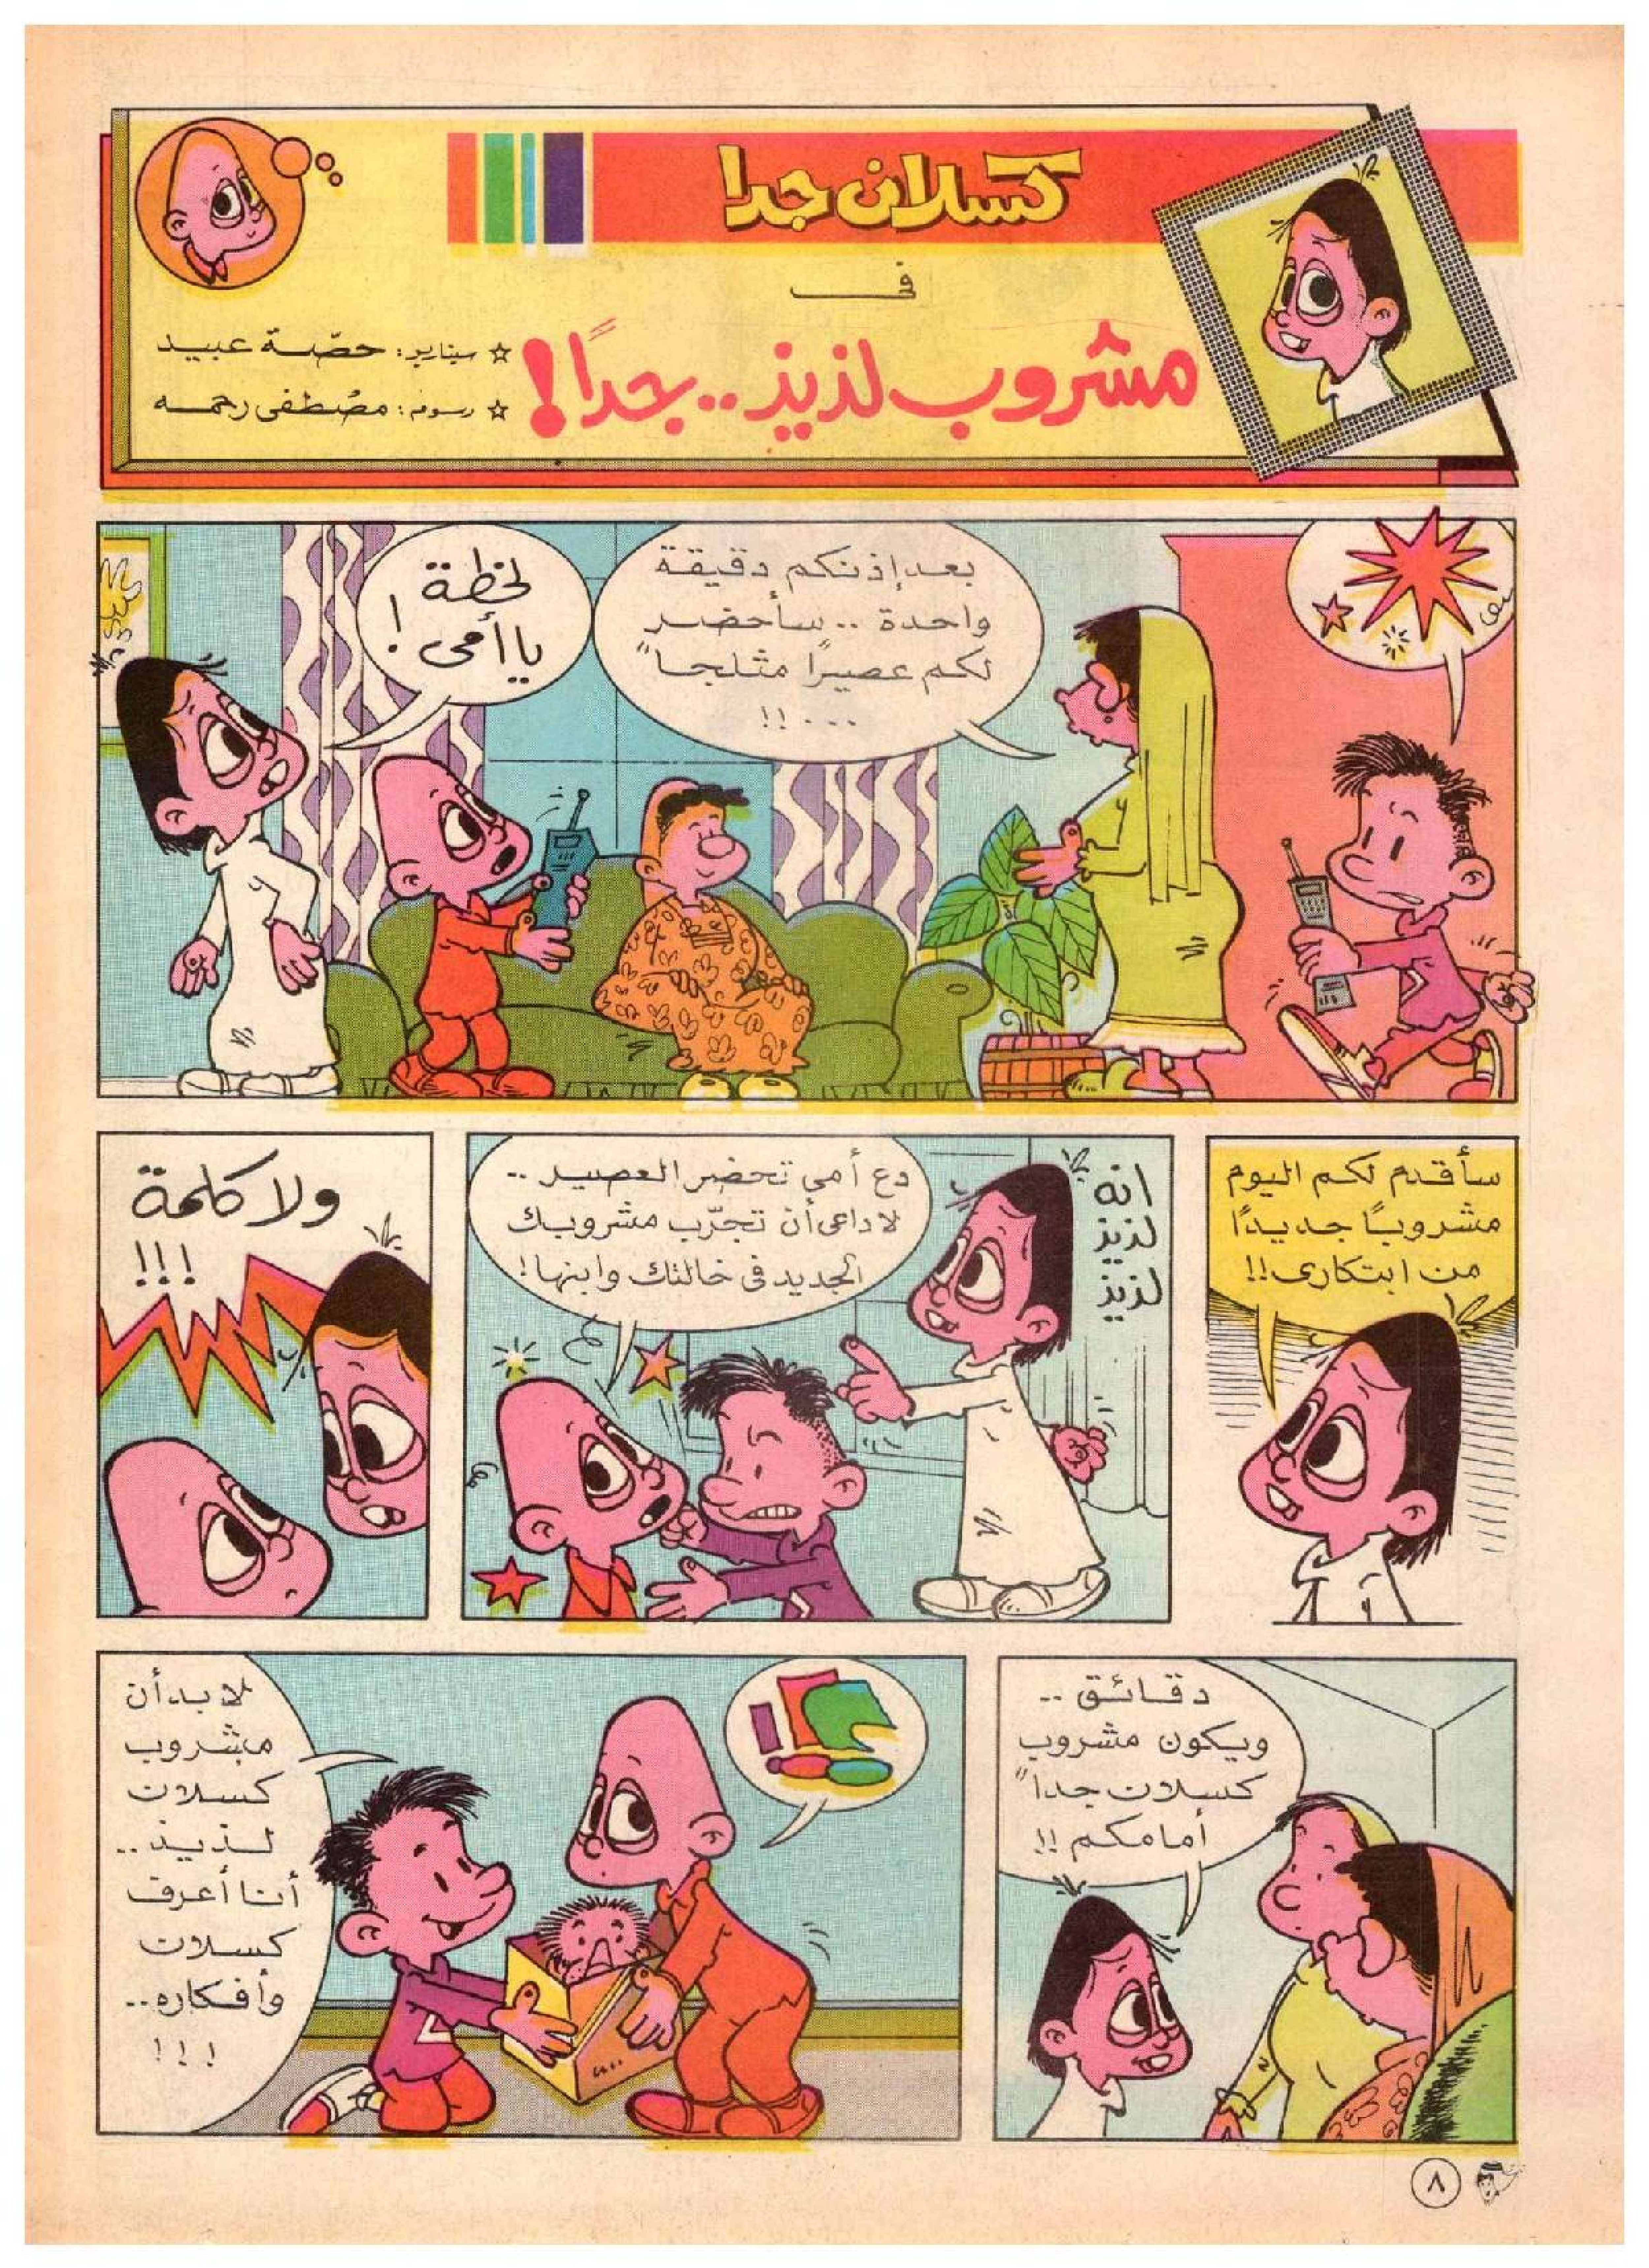 كسلان جدا
في
مشروب لذيذ.. جداً!
☆ سيناريو: حصّة عبيد
☆ رسوم: مصطفى رحمه
بعد إذنكم دقيقة
واحدة .. سأحضر
لكم عصيرًا مثلجا"
...!!
لحظة
يا أمي!
سأقدم لكم اليوم
مشروبًا جديدًا
من ابتكاري!!
انه
لذيذ
لذيذ
دع أمي تحضر العصير ..
لا داعي أن تجرّب مشروبك
الجديد في خالتك وابنها!
ولا كلمة
!!!
دقائق ..
ويكون مشروب
كسلان جدا"
أمامكم !!
لا بد أن
مشروب
كسلان
لذيذ ..
أنا أعرف
كسلان
وأفكاره ..
!!!
٨